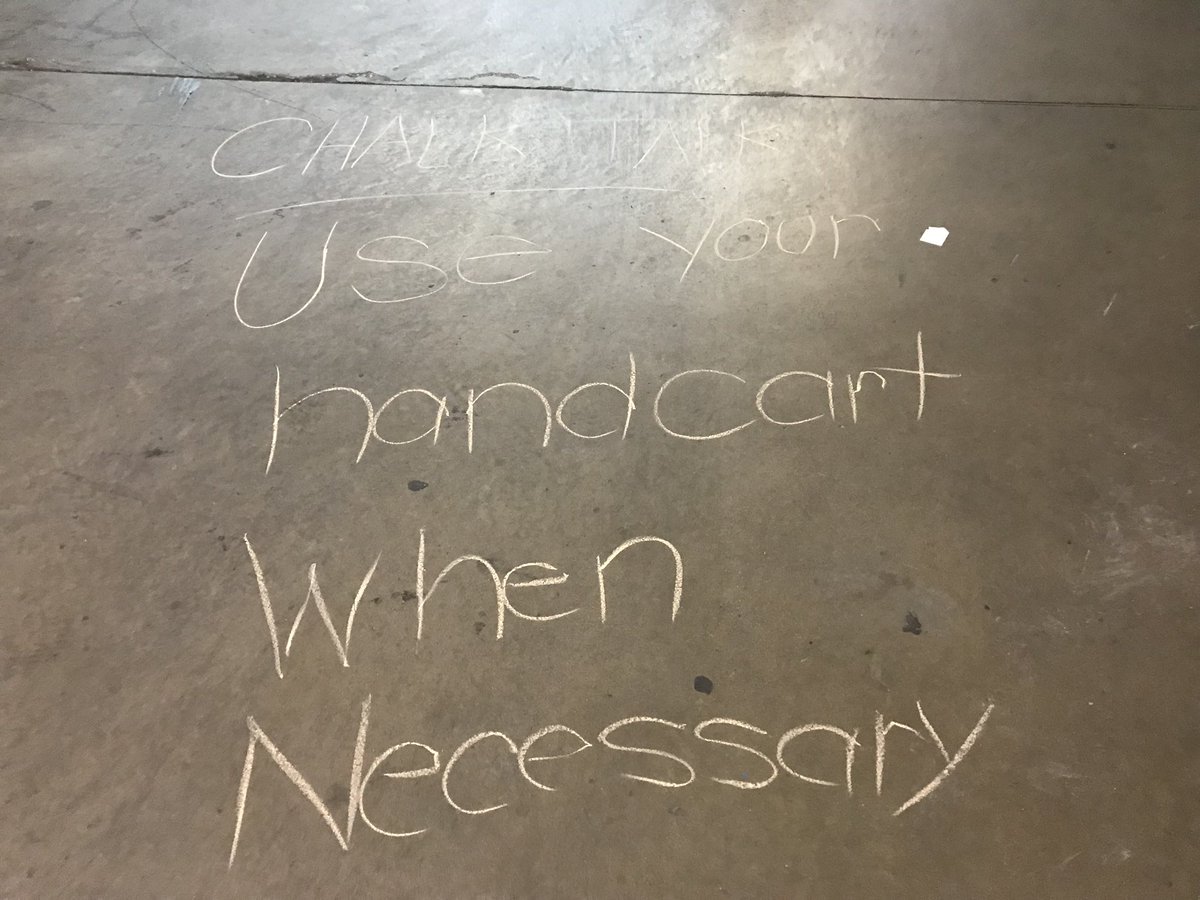 CHALK TALK
USE your
handcart
When
Necessary